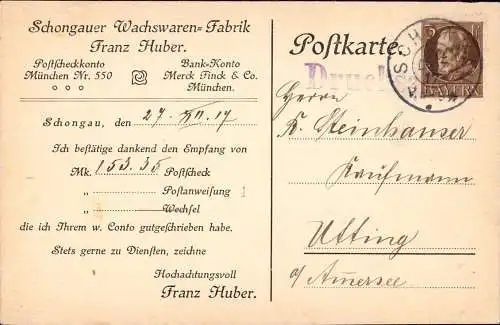 Schongauer Wachswaren=Fabrik
Franz Huber.
Postscheckkonto
München Nr. 550
Bank-Konto
Merck Finck & Co.
München.
Schongau, den 27. XII. 17
Ich bestätige dankend den Empfang von
Mk. 153.35 Postscheck
„ Postanweisung
„ Wechsel
die ich Ihrem w. Conto gutgeschrieben habe.
Stets gerne zu Diensten, zeichne
Hochachtungsvoll
Franz Huber.
Postkarte.
BAYERN
Herrn
K. Steinhauser
Kaufmann
Utting
a/Ammersee